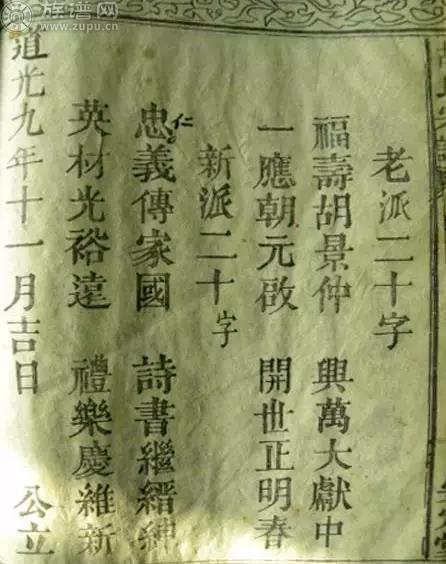 老派二十字
福壽胡景仲 興萬大獻中
一應朝元啟 開世正明春
新派二十字
忠仁義傳家國 詩書繼縉紳
英材光裕遠 禮樂慶維新
道光九年十一月吉日 公立
族谱网
www.zupu.cn